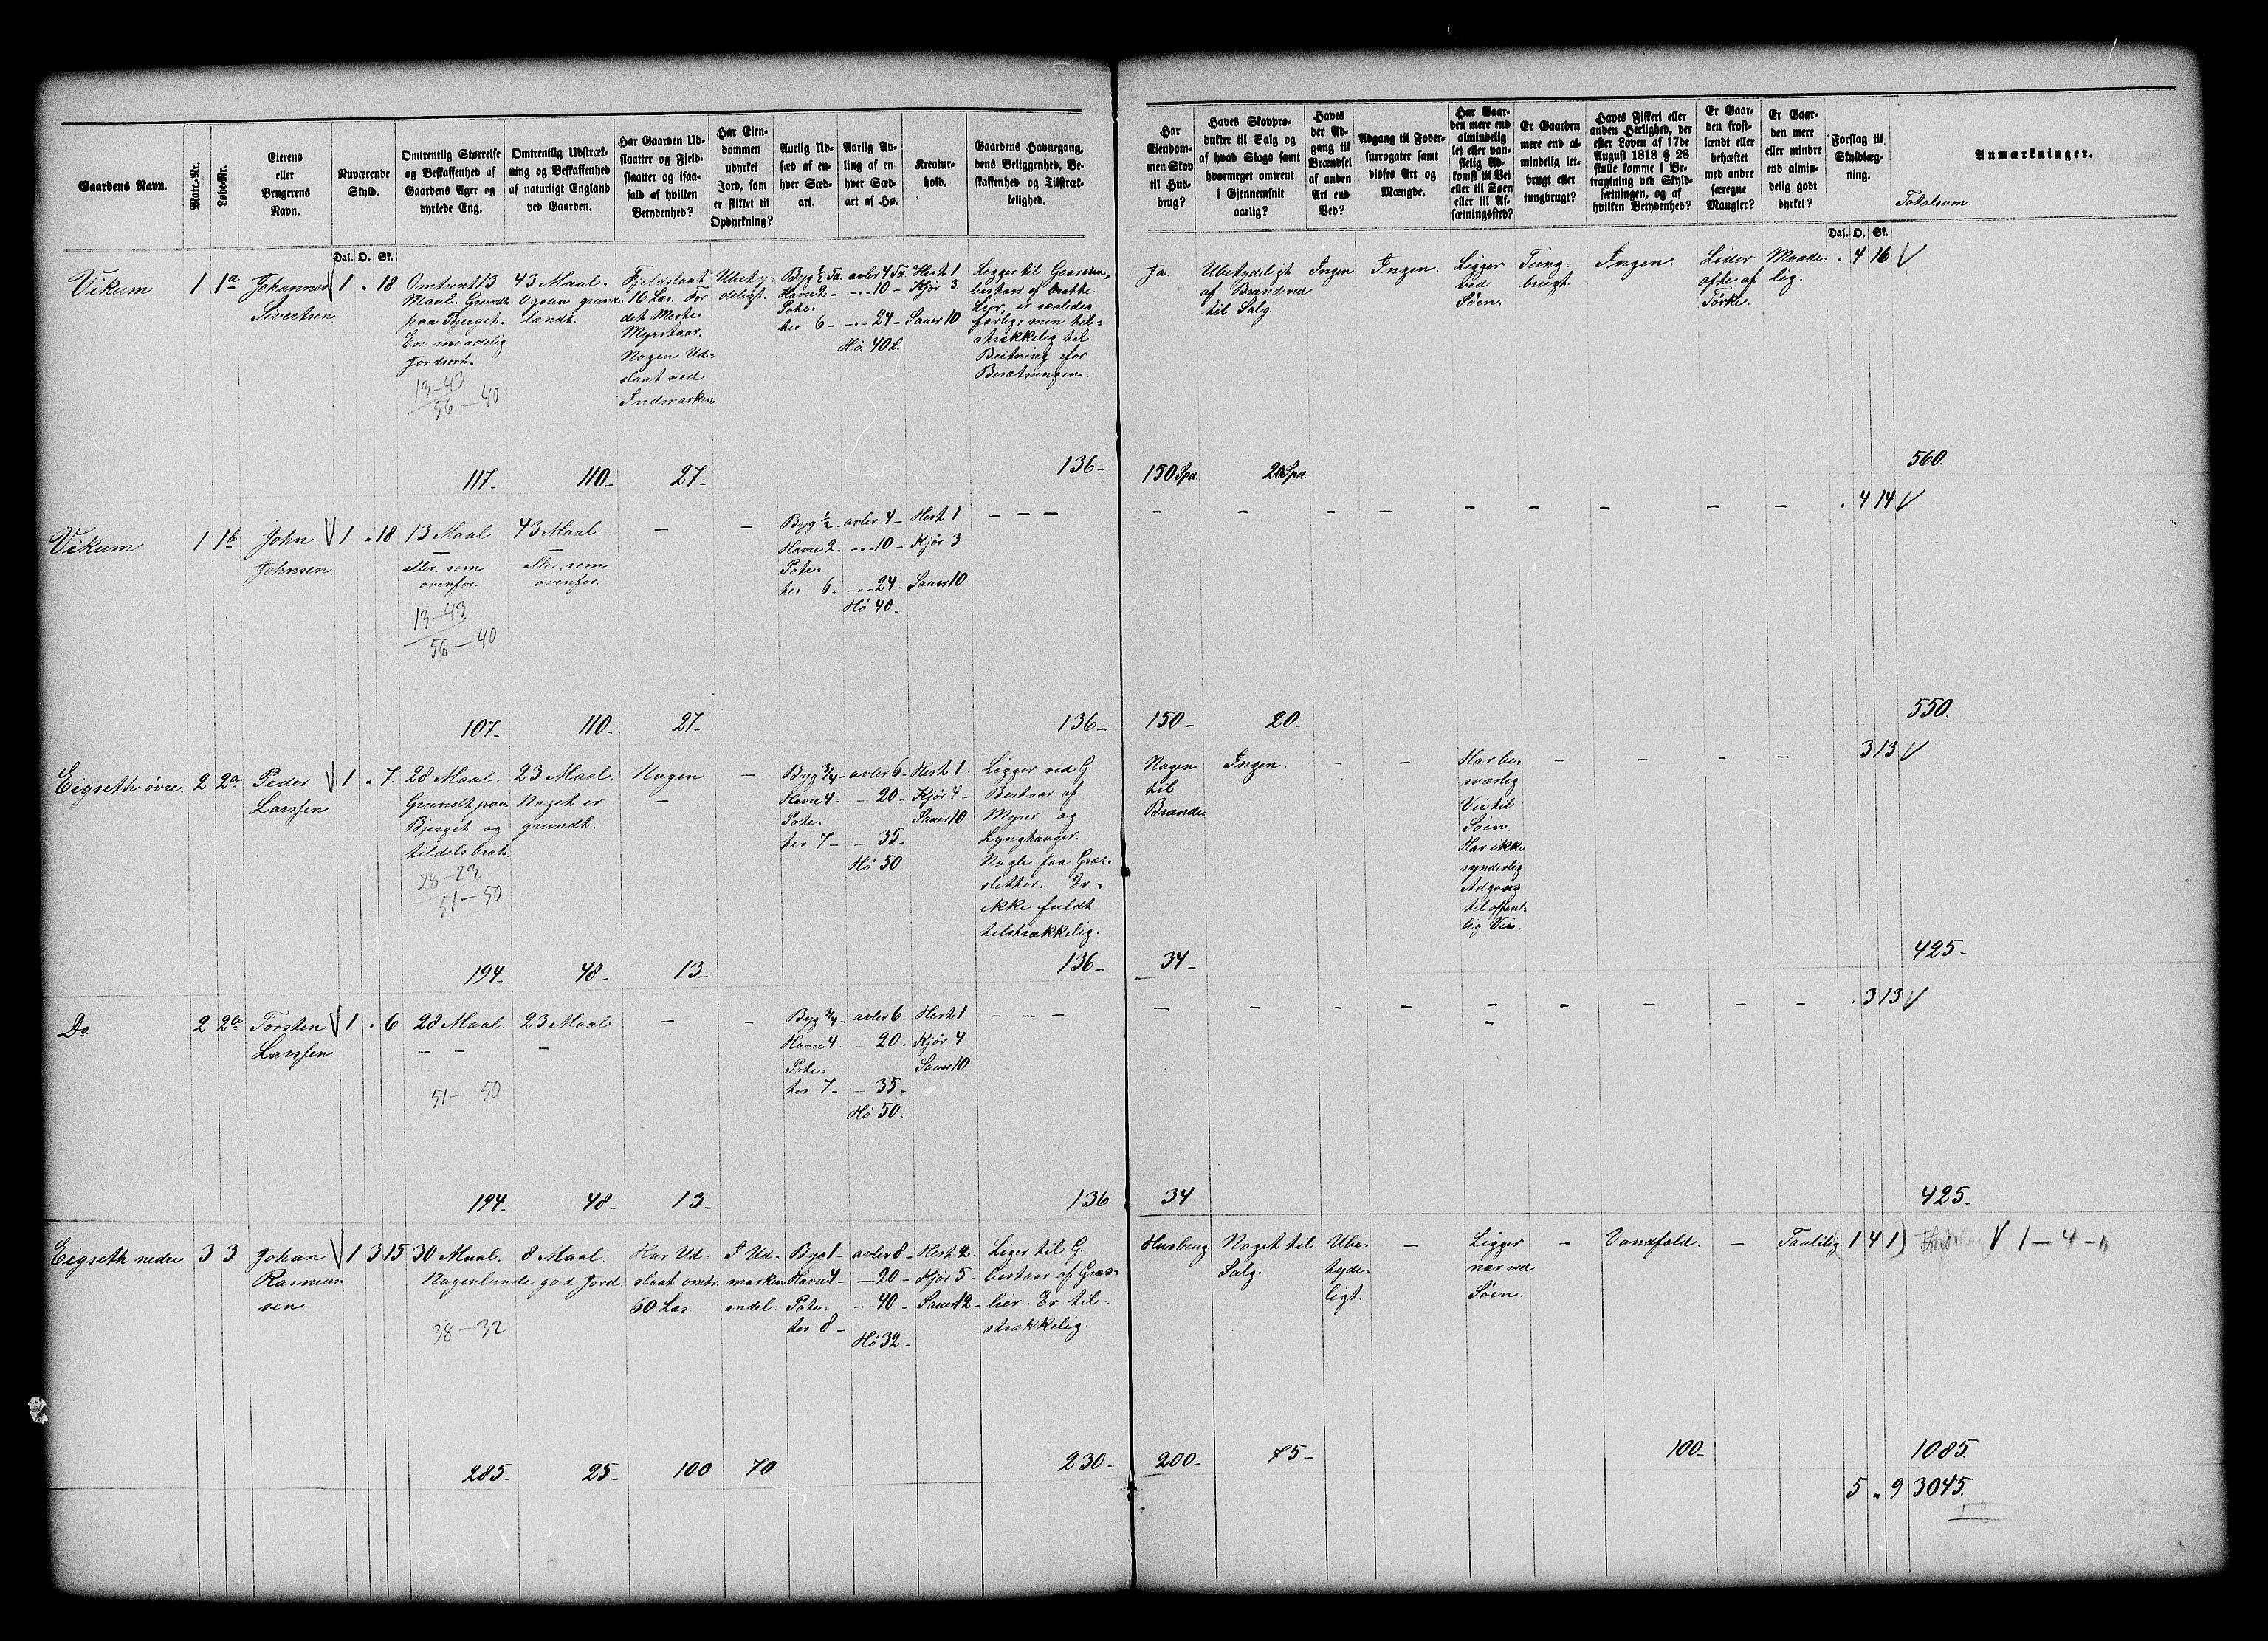 Gaardens Navn.
Matr.-Nr.
Løbe-Nr.
Eierens
eller
Brugerens
Navn.
Nuværende
Skyld.
Dal. O. Sk.
Omtrentlig Størrelse
og Beskaffenhed af
Gaardens Ager og
dyrkede Eng.
Omtrentlig Udstræk-
ning og Beskaffenhed
af naturligt England
ved Gaarden.
Har Gaarden Ud-
slaatter og Fjeld-
slaatter og isaa-
fald af hvilken
Betydenhed?
Har Eien-
dommen
udyrket
Jord, som
er skikket til
Opdyrkning?
Aarlig Ud-
sæd af en-
hver Sæd-
art.
Aarlig Av-
ling af en
hver Sæd-
art af Hø.
Kreatur-
hold.
Gaardens Havnegang,
dens Beliggenhed, Be-
skaffenhed og Tilstræk-
kelighed.
Har
Eiendom-
men Skov
til Hus-
brug?
Haves Skovpro-
dukter til Salg og
af hvad Slags samt
hvormeget omtrent
i Gjennemsnit
aarlig?
Haves
der Ad-
gang til
Brændsel
af anden
Art end
Ved?
Adgang til Foder-
surrogater samt
disses Art og
Mængde.
Har Gaar-
den mere end
almindelig
let eller van-
skelig Ad-
komst til Vei
eller til Søen
eller til Af-
sætningssted?
Er Gaarden
mere end al-
mindelig let-
brugt eller
tungbrugt?
Haves Fiskeri eller
anden Herlighed, der
efter Loven af 17de
August 1818 § 28
skulle komme i Be-
tragtning ved Skyld-
sætningen, og af
hvilken Betydenhed?
Er Gaar-
den frost-
lændt eller
behæftet
med andre
særegne
Mangler?
Er Gaar-
den mere
eller mindre
end almin-
delig godt
dyrket?
Forslag til
Skyldlæg-
ning.
Dal. O. Sk.
Anmærkninger.
Totalsum.
Vikum 1 1a
Johannes
Sivertsen
1 " 18
Omtrent 13
Maal. Grundt
paa Bjerget.
En maadelig
Jordsort.
13-43
56-40
43 Maal.
Ogsaa grund-
lændt.
Fjeldslaat
16 Læs. For
det Meste
Myrslaat.
Nogen Ud-
slaat ved
Indmarken
Ubety-
deligt.
Byg ½ Tø.
Havre 2 -
Pote-
tes 6 -
avler 4 Tø.
-"- 10 -
-"- 24 -
Hø. 40 L.
Hest 1
Kjør 3
Sauer 10.
Ligger til Gaarden,
bestaar af bratte
Lier, er saaledes
farlig, men til-
strækkelig til
Beitning for
Besætningen.
Ja.
Ubetydeligt
af Brændeved
til Salg.
Ingen
Ingen.
Ligger
ved
Søen.
Tung-
brugt.
Ingen.
Lider
ofte af
Tørke.
Maade-
lig.
" 4 16 V
117- 110- 27- 136- 150 Spd. 20 Spd. 560.
Vikum 1 1b
John
Johnsen.
V 1 " 18
13 Maal
eller som
ovenfor.
13-43
56-40
43 Maal.
eller som
ovenfor.
- -
Byg ½ -
Havre 2.
Pote-
tes 6 -
avler 4 -
-"- 10 -
-"- 24 -
Hø 40 -
Hest 1
Kjør 3
Sauer 10
- - -
- - - - - - - - -
" 4 14 V
107- 110- 27- 136- 150- 20- 550.
Eigseth övre. 2 2a
Peder
Larssen
V 1 " 7.
28 Maal.
Grundt paa
Bjerget og
tildels brat.
28-23
51-50
23 Maal.
Noget er
grundt.
Nogen
- -
Byg ¾ -
Havre 4 -
Pote-
tes 7 -
avler 6 -
- 20 -
- 35 -
Hø 50
Hest 1.
Kjør 4 -
Sauer 10
Ligger ved G.
Bestaar af
Myrer og
Lynghauger.
Nogle faa Græs-
sletter. Er
ikke fuldt
tilstrækkelig.
Nogen
til
Brænde
Ingen.
- -
Har be-
sværlig
Vei til
Søen.
Har ikke
synderlig
Adgang
til offent-
lig Vei.
- - - -
3 13 V
194- 48- 13- 136- 34- 425-
Do 2 2b
Torsten
Larssen
V 1 " 6
28 Maal.
- -
51- 50
23 Maal
-
- -
Byg ¾ -
Havre 4 -
Pote-
tes 7 -
avler 6.
- 20 -
- 35 -
Hø 50.
Hest 1
Kjør 4
Sauer 10
- - -
- - - - - - - - -
" 3 13 V
194- 48- 13- 136 34 425-
Eigseth nedre 3 3
Johan
Rasmus-
sen
V 1 3 15
30 Maal.
Nogenlunde god Jord.
38-32
8 Maal.
Har Ud-
slaat omtr.
60 Læs.
I Ud-
marken
endel.
Byg 1 -
Havre 4 -
Pote-
tes 8 -
avler 8 -
- 20 -
-"- 40 -
Hø 32 -
Hest 2.
Kjør 5 -
Sauer 12 -
Liger til G.
bestaar af Græs-
lier. Er til-
strækkelig.
Husbrug
Noget til
Salg.
Ube-
tyde-
ligt.
-
Ligger
nær ved
Søen.
-
Vandfald.
-
Taalelig
1 4 1)
V 1-4-"
285- 25- 100 70 230- 200- 75- 100- 1085.
5 " 9 3045.